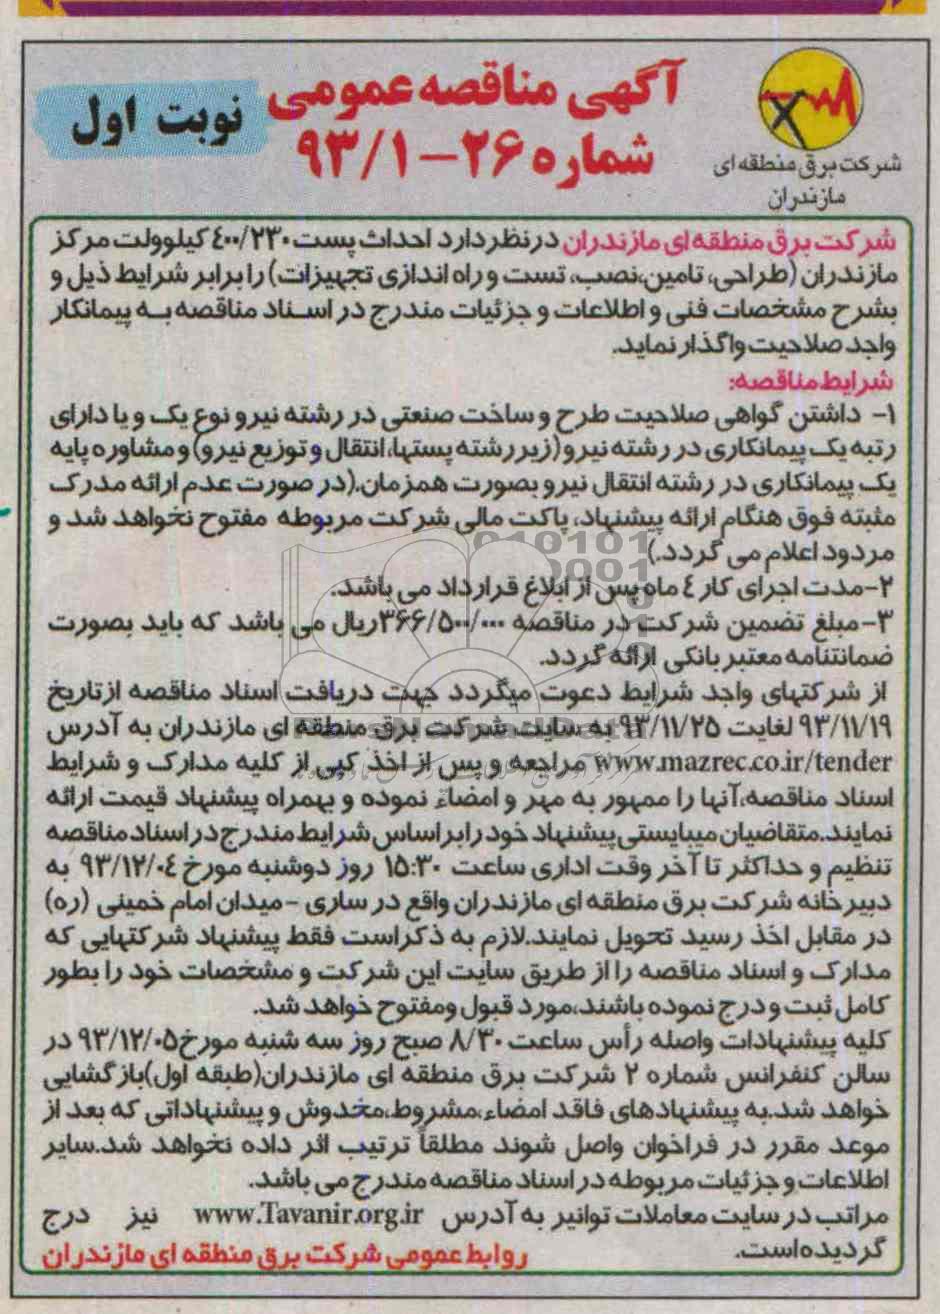 آگهی مناقصه عمومی
شماره ۲۶-۹۳/۱
نوبت اول
شرکت برق منطقه ای
مازندران
شرکت برق منطقه ای مازندران درنظردارد احداث پست ۴۰۰/۲۳۰ کیلوولت مرکز
مازندران (طراحی، تامین،نصب، تست و راه اندازی تجهیزات) را برابر شرایط ذیل و
بشرح مشخصات فنی و اطلاعات و جزئیات مندرج در اسناد مناقصه به پیمانکار
واجد صلاحیت واگذار نماید.
شرایط مناقصه:
۱- داشتن گواهی صلاحیت طرح و ساخت صنعتی در رشته نیرو نوع یک و یا دارای
رتبه یک پیمانکاری در رشته نیرو (زیررشته پستها، انتقال و توزیع نیرو) و مشاوره پایه
یک پیمانکاری در رشته انتقال نیرو بصورت همزمان.(در صورت عدم ارائه مدرک
مثبته فوق هنگام ارائه پیشنهاد، پاکت مالی شرکت مربوطه مفتوح نخواهد شد و
مردود اعلام می گردد.)
۲-مدت اجرای کار ٤ ماه پس از ابلاغ قرارداد می باشد.
۳-مبلغ تضمین شرکت در مناقصه ۳۶۶/۵۰۰/۰۰۰ریال می باشد که باید بصورت
ضمانتنامه معتبر بانکی ارائه گردد.
از شرکتهای واجد شرایط دعوت میگردد جهت دریافت اسناد مناقصه ازتاریخ
۹۳/۱۱/۱۹ لغایت ۹۳/۱۱/۲۵ به سایت شرکت برق منطقه ای مازندران به آدرس
www.mazrec.co.ir/tender مراجعه و پس از اخذ کپی از کلیه مدارک و شرایط
اسناد مناقصه،آنها را ممهور به مهر و امضاء نموده و بهمراه پیشنهاد قیمت ارائه
نمایند.متقاضیان میبایستی پیشنهاد خود رابراساس شرایط مندرج در اسناد مناقصه
تنظیم و حداکثر تا آخر وقت اداری ساعت ۱۵:۳۰ روز دوشنبه مورخ ۹۳/۱۲/۰٤ به
دبیرخانه شرکت برق منطقه ای مازندران واقع در ساری -میدان امام خمینی (ره)
در مقابل اخذ رسید تحویل نمایند.لازم به ذکراست فقط پیشنهاد شرکتهایی که
مدارک و اسناد مناقصه را از طریق سایت این شرکت و مشخصات خود را بطور
کامل ثبت و درج نموده باشند،مورد قبول ومفتوح خواهد شد.
کلیه پیشنهادات واصله رأس ساعت ۸/۳۰ صبح روز سه شنبه مورخ۹۳/۱۲/۰۵ در
سالن کنفرانس شماره ۲ شرکت برق منطقه ای مازندران(طبقه اول)بازگشایی
خواهد شد.به پیشنهادهای فاقد امضاء،مشروط،مخدوش و پیشنهاداتی که بعد از
موعد مقرر در فراخوان واصل شوند مطلقاً ترتیب اثر داده نخواهد شد.سایر
اطلاعات و جزئیات مربوطه در اسناد مناقصه مندرج می باشد.
مراتب در سایت معاملات توانیر به آدرس www.Tavanir.org.ir نیز درج
گردیده‌است.
روابط عمومی شرکت برق منطقه ای مازندران